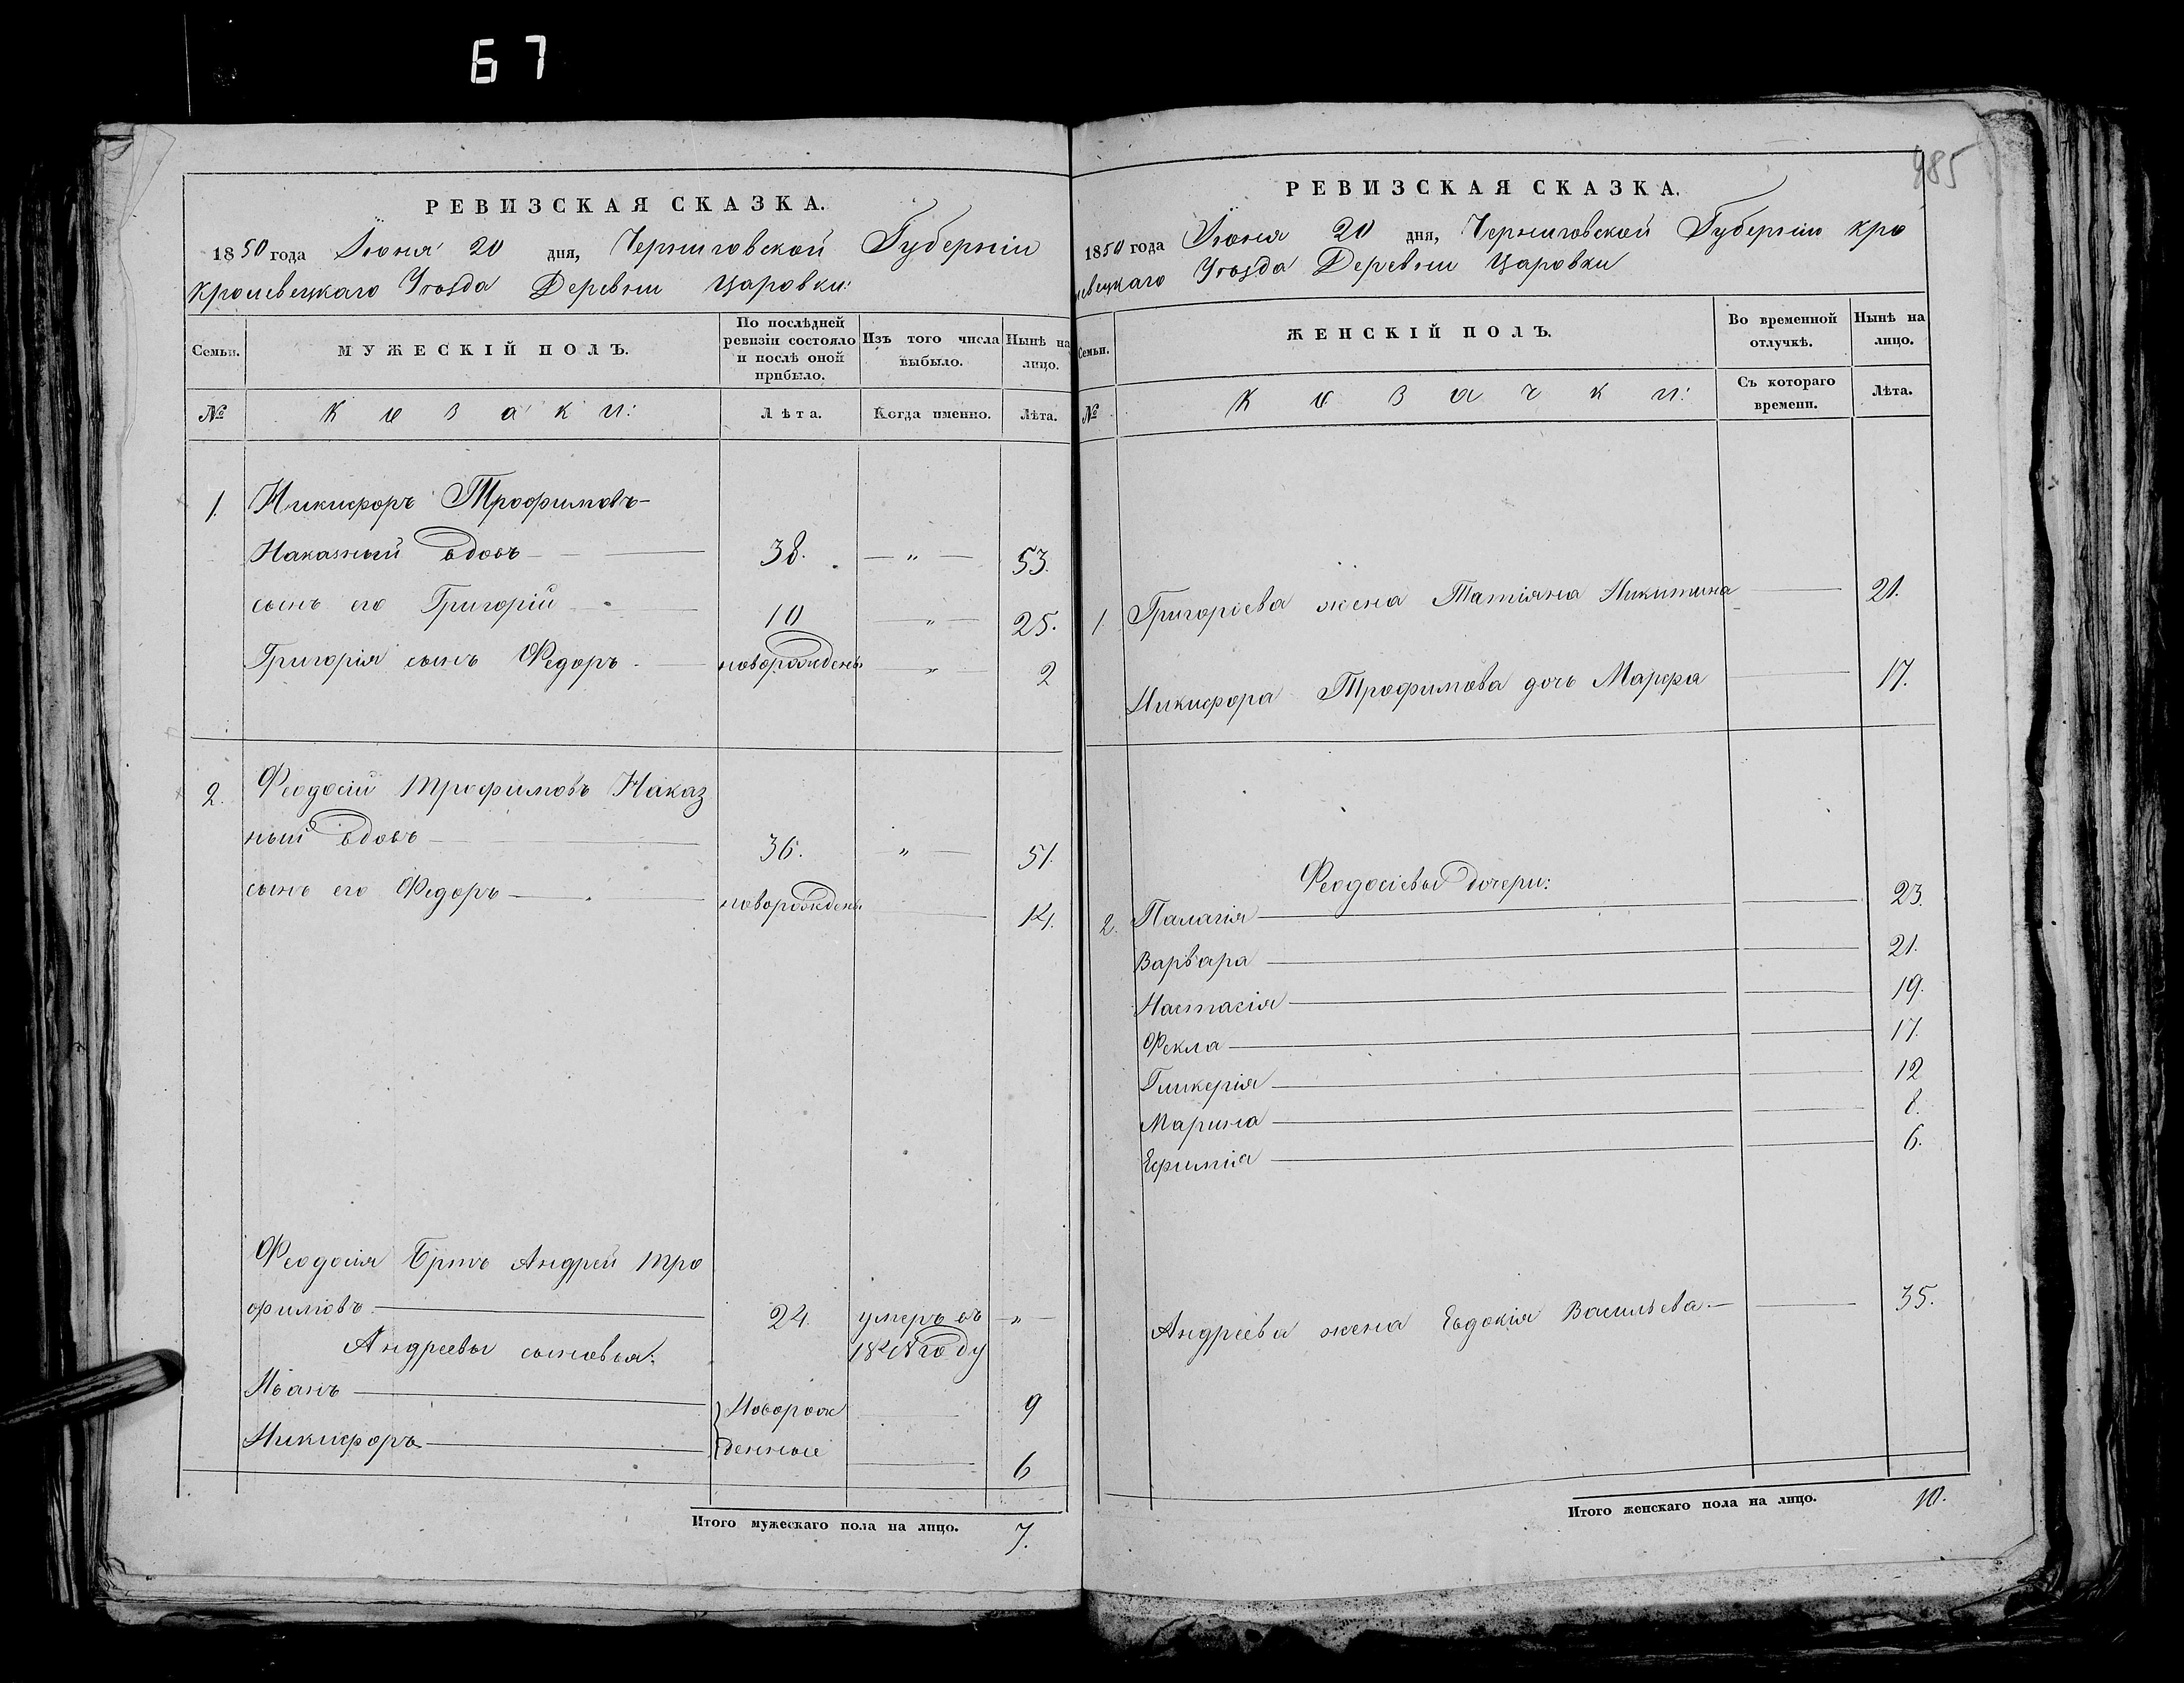 67
985
РЕВИЗСКАЯ СКАЗКА.
1850 года Іюня 20 дня, Черниговской Губерніи
Кролевецкаго Уѣзда Деревни Царовки:
Семьи.
МУЖЕСКІЙ ПОЛЪ.
По послѣдней ревизіи состояло и послѣ оной прибыло.
Изъ того числа выбыло.
Нынѣ на лицо.
№
Козаки:
Лѣта.
Когда именно.
Лѣта.
1. Никифоръ Трофимовъ
Наказный вдовъ 38. „ 53.
сынъ его Григорій 10 „ 25.
Григорія сынъ Федоръ новорожденъ „ 2
2. Феодосій Трофимовъ Наказ
ный вдовъ 36. „ 51.
сынъ его Федоръ новорожденъ 14.
Феодосія Братъ Андрей Тро
фимовъ 24. умеръ въ „
году
Андреевы сыновья:
Иванъ Новорож 9
Никифоръ денные 6
Итого мужескаго пола на лицо. 7.
РЕВИЗСКАЯ СКАЗКА.
1850 года Іюня 20 дня, Черниговской Губерніи Кро
левецкаго Уѣзда Деревни Царовки
Семьи.
ЖЕНСКІЙ ПОЛЪ.
Во временной отлучкѣ.
Нынѣ на лицо.
№
Козачки:
Съ котораго времени.
Лѣта.
1. Григоріева жена Татіяна Никитина 21.
Никифора Трофимова дочь Марфа 17.
Феодосіевы дочери:
2. Палагія 23.
Варвара 21.
Настасія 19.
Фекла 17.
Гликерія 12
Марина 8.
Ефимія 6.
Андреева жена Евдокія Васильева. 35.
Итого женскаго пола на лицо. 10.